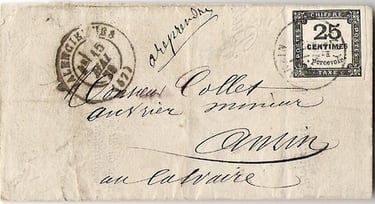 areprendre
CHIFFRE
25
CENTIMES
à
Percevoir
TAXE
POSTES
POSTES
VALENCIE
15
MAI
Monsieur Collet
ouvrier mineur
Anzin
au Calvaire